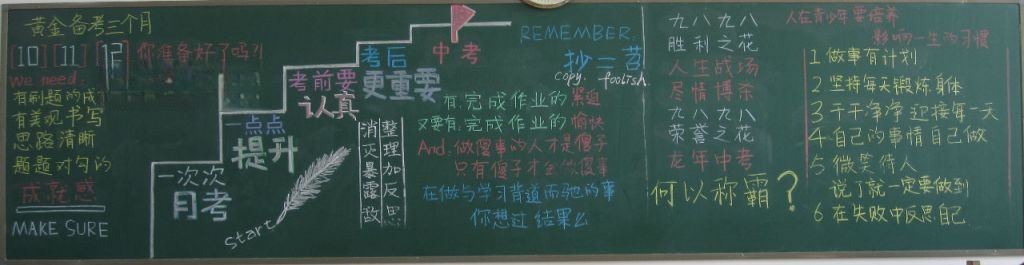 黄金备考三个月
10 11 12 你准备好了吗?!
we need:
有刷题的成
有美观书写
思路清晰
题题对勾的
成就感
MAKE SURE
一次次
月考
一点点
提升
考前要
认真
考后
更重要
中考
start
消灭暴露敌
整理加反思
REMEMBER:
抄=苔
copy. foolish
有完成作业的紧迫
又要有完成作业的愉快
And. 做傻事的人才是傻子
只有傻子才会做傻事
在做与学习背道而驰的事
你想过结果么
九八九八
胜利之花
人生战场
尽情博杀
九八九八
荣誉之花
龙年中考
何以称霸?
人在青少年要培养
影响一生的习惯
1 做事有计划
2 坚持每天锻炼身体
3 干干净净迎接每一天
4 自己的事情自己做
5 微笑待人
说了就一定要做到
6 在失败中反思自己